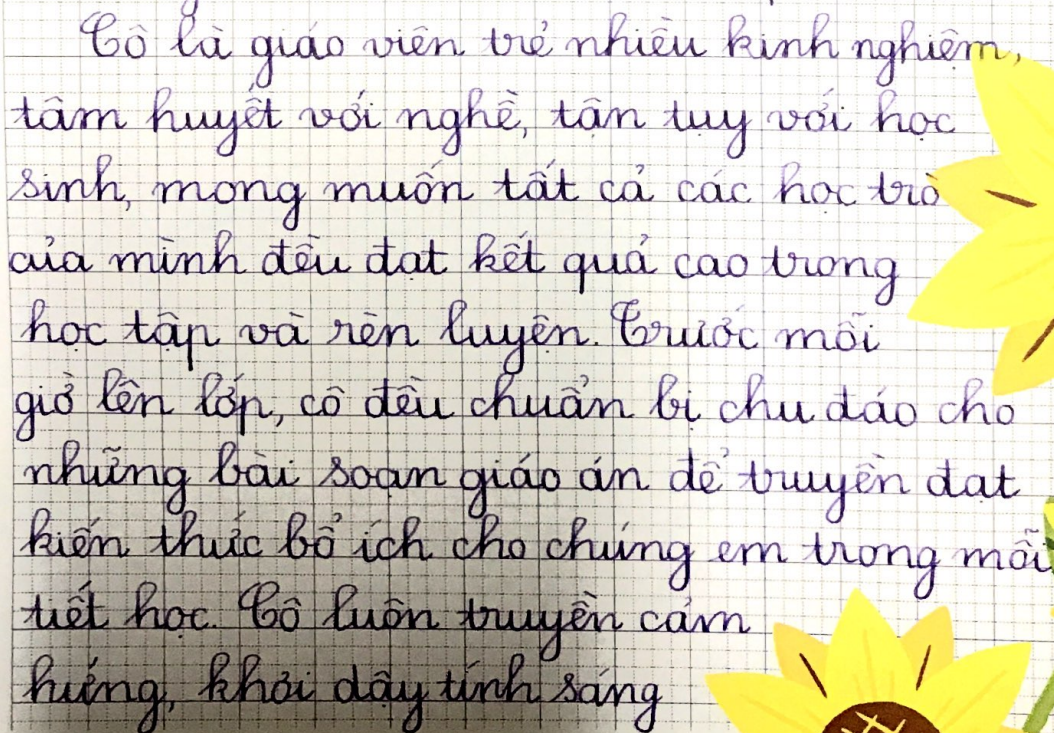 Cô là giáo viên trẻ nhiều kinh nghiệm,
tâm huyết với nghề, tận tụy với học
sinh, mong muốn tất cả các học trò
của mình đều đạt kết quả cao trong
học tập và rèn luyện. Trước mỗi
giờ lên lớp, cô đều chuẩn bị chu đáo cho
những bài soạn giáo án để truyền đạt
kiến thức bổ ích cho chúng em trong mỗi
tiết học. Cô luôn truyền cảm
hứng, khơi dậy tính sáng